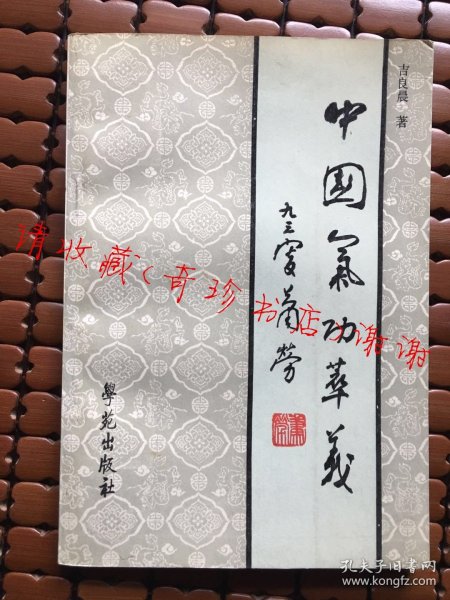 吉良晨 著
中國氣功萃義
九三叟蕭勞
學苑出版社
请收藏(奇珍书店)谢谢
孔夫子旧书网
www.kongfz.com